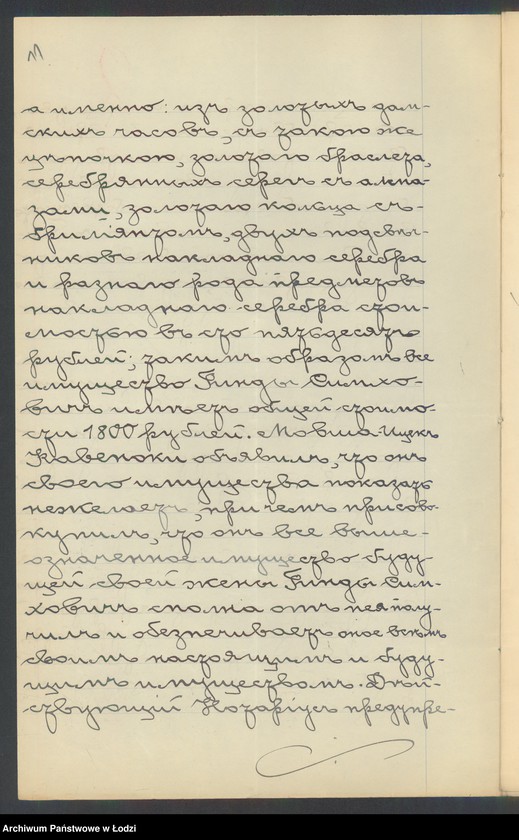 а именно: изъ золотыхъ дам-
скихъ часовъ, съ такою же
цѣпочкою, золотаго браслета,
серебрянныхъ серегъ съ алма-
зами, золотаго кольца съ-
брилiянтомъ, двухъ подсвѣч-
никовъ накладнаго серебра
и разнаго рода предметовъ
накладнаго серебра стои-
мостью въ сто пятьдесятъ
рублей; такимъ образомъ все
имущество Гинды Симхо-
вичъ имѣетъ общей стоимо-
сти 1800 рублей. Мовша-Ицекъ
Кавеноки объявилъ, что онъ
своего имущества показать
нежелаетъ, при чемъ присово-
купилъ, что онъ все выше-
означенное имущество буду-
щей своей жены Гинды Сим-
ховичъ сполна отъ нея полу-
чилъ и обезпечиваетъ оное всѣмъ
своимъ настоящимъ и буду-
щимъ имуществомъ. Дѣй-
ствующій Нотаріусъ предупре-
Archiwum Państwowe w Łodzi